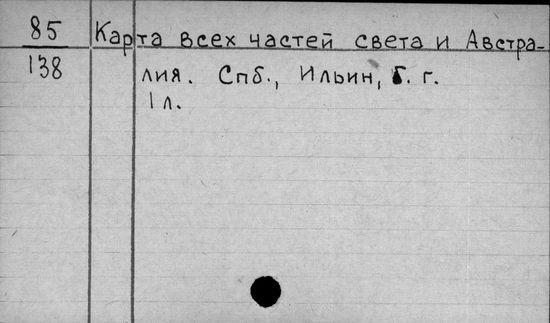 85 Карта всех частей света и Австра-
138 лия. Спб., Ильин, б. г.
1 л.